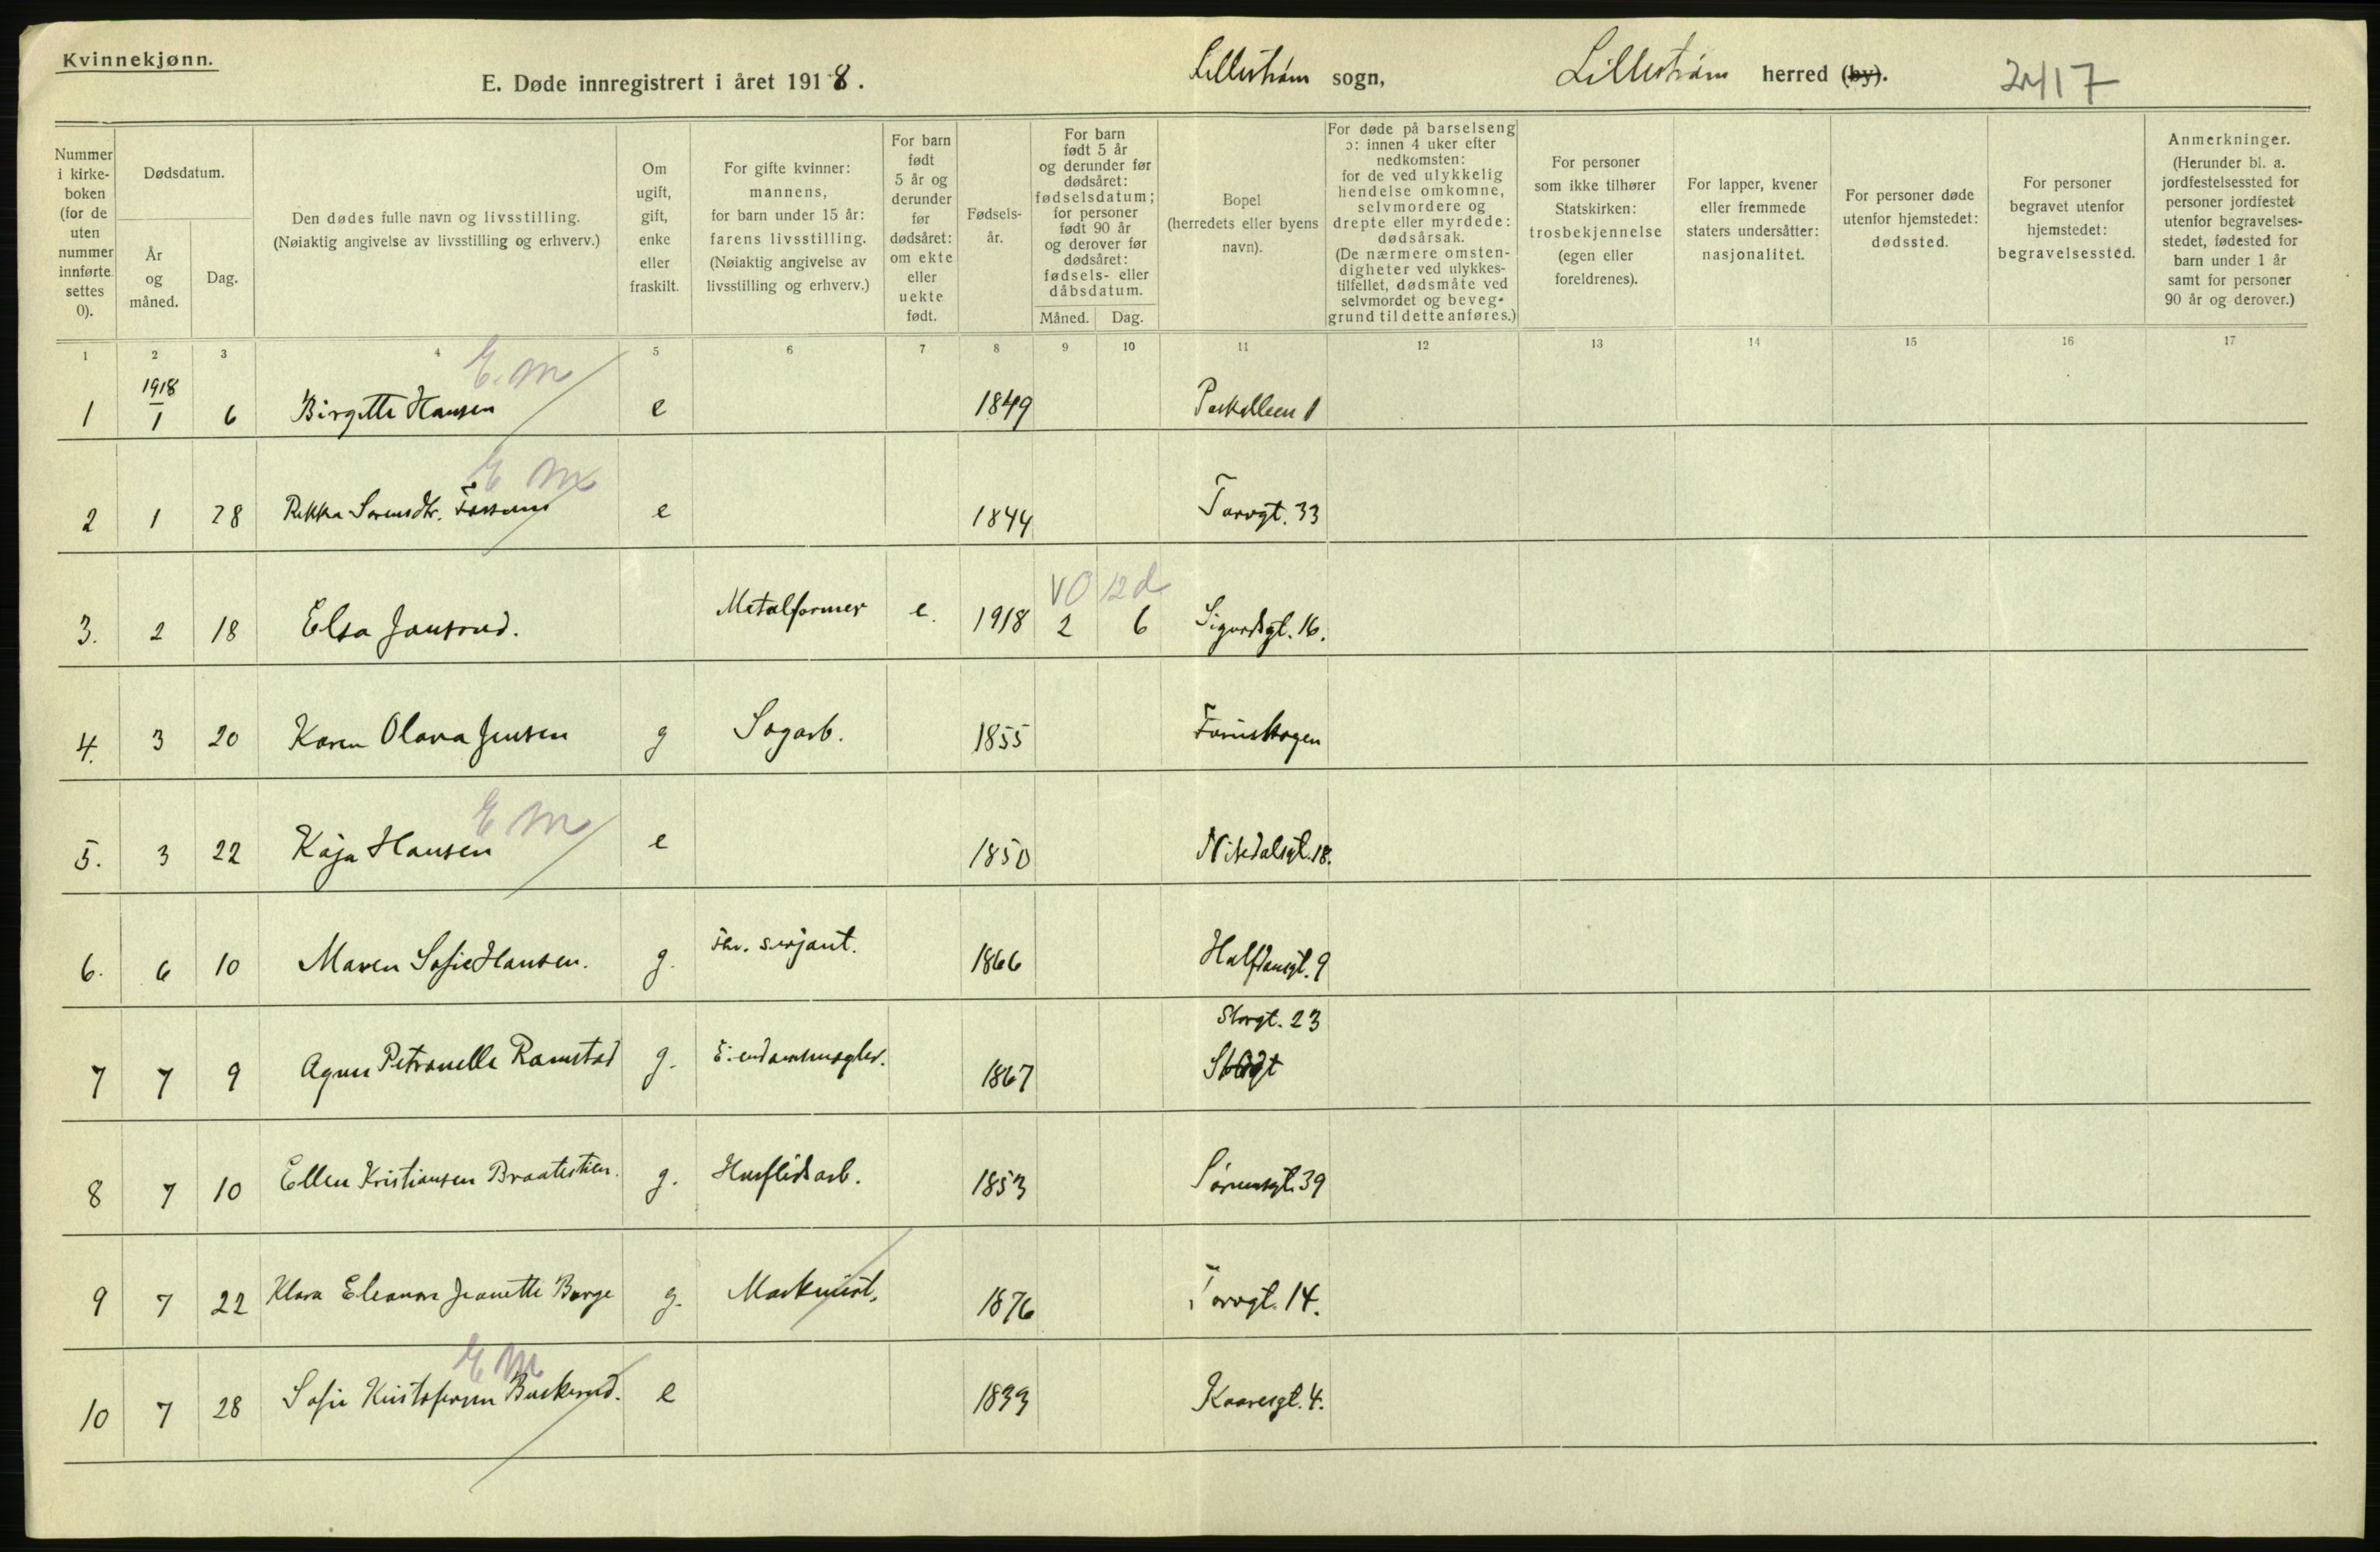 Kvinnekjønn.
E. Døde innregistrert i året 1918.
Lillestrøm sogn,
Lillestrøm herred (by).
2417
Nummer i kirke-boken (for de uten nummer innførte settes 0).
Dødsdatum.
År og måned.
Dag.
Den dødes fulle navn og livsstilling.
(Nøiaktig angivelse av livsstilling og erhverv.)
Om ugift, gift, enke eller fraskilt.
For gifte kvinner: mannens, for barn under 15 år: farens livsstilling. (Nøiaktig angivelse av livsstilling og erhverv.)
For barn født 5 år og derunder før dødsåret: om ekte eller uekte født.
Fødsels-år.
For barn født 5 år og derunder før dødsåret: fødselsdatum; for personer født 90 år og derover før dødsåret: fødsels- eller dåbsdatum.
Måned.
Dag.
Bopel (herredets eller byens navn).
For døde på barselseng ɔ: innen 4 uker efter nedkomsten: for de ved ulykkelig hendelse omkomne, selvmordere og drepte eller myrdede: dødsårsak. (De nærmere omsten-digheter ved ulykkes-tilfellet, dødsmåte ved selvmordet og beveg-grund til dette anføres.)
For personer som ikke tilhører Statskirken: trosbekjennelse (egen eller foreldrenes).
For lapper, kvener eller fremmede staters undersåtter: nasjonalitet.
For personer døde utenfor hjemstedet: dødssted.
For personer begravet utenfor hjemstedet: begravelsessted.
Anmerkninger. (Herunder bl. a. jordfestelsessted for personer jordfestet utenfor begravelses-stedet, fødested for barn under 1 år samt for personer 90 år og derover.)
1 2 3 4 5 6 7 8 9 10 11 12 13 14 15 16 17
E. M
1 1918/1 6 Birgitte Hansen e 1849
E M
2 1 28 Rikka Sørensdtr. Fossum e 1844 Torvgt. 33
V0 12d
3. 2 18 Elsa Jansrud. Metalformer e. 1918 2 6 Sigurdsgt. 16.
4. 3 20 Karen Olava Jensen g Sagarb. 1855
E M
5. 3 22 Kaja Hansen e 1850 Nitedalsgt. 18.
6. 6 10 Maren Sofie Hansen. g. serjant. 1866 Halfdansgt. 9
Storgt. 23
7 7 9 Agnes Petronelle Ramstad g. Eiendomsmegler. 1867
8 7 10 Ellen Kristiansen Braatestien. g. Husflidsarb. 1853 Sørumsgt. 39
9 7 22 Klara Eleonora Jeanette Borge g. Maskinist. 1876 Torvgt. 14.
E M
10 7 28 Sofie Kristofersen Buskerud. e 1833 Kaaresgt. 4.